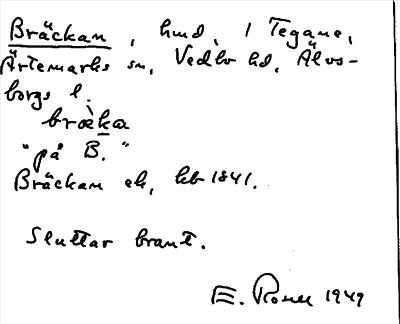 Bräckan, hmd, i Tegane,
Ärtemarks sn, Vedbo hd, Älvs-
borgs l.
bræ̀ka
"på B."
Bräckan ek, kb 1841.
Sluttar brant.
E. 1949